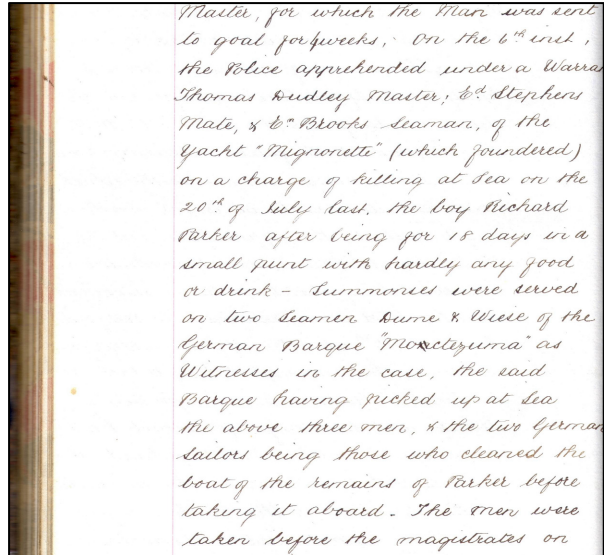 Master, for which the Man was sent
to goal for 4 weeks, On the 6th inst,
the Police apprehended under a Warra
Thomas Dudley Master; Ed Stephens
Mate, & Em Brooks Seaman, of the
Yacht "Mignonette" (which foundered)
on a charge of killing at Sea on the
20th of July last, the boy Richard
Parker after being for 18 days in a
small punt with hardly any food
or drink – Summonses were served
on two Seamen Dume & Wiese of the
German Barque "Moctezuma" as
Witnesses in the case, the said
Barque having picked up at Sea
the above three men, & the two German
Sailors being those who cleaned the
boat of the remains of Parker before
taking it aboard – The men were
taken before the magistrates on